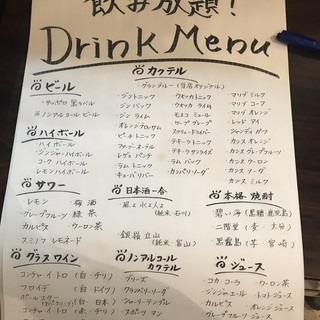 飲み放題!
Drink Menu
ビール
サッポロ 黒ラベル
ノンアルコール ビール
ハイボール
ハイボール
ジンジャーハイボール
コーク ハイボール
レモン ハイボール
サワー
レモン 梅酒
グレープフルーツ 緑茶
カルピス ウーロン茶
スミノフ レモネード
グラス ワイン
コンチャ・イトロ (白・チリ)
フロイデ (白・ドイツ)
(白・日本)
コンチャ・イトロ (赤・チリ)
カクテル
グランブルー (当店オリジナル)
ジントニック
ジンバック
ジン ライム
オレンジブロッサム
ピーチ トニック
ファジーネーブル
レゲェ パンチ
ラム トニック
ラム コーク
キューバリバー
ウォッカトニック
ウォッカ ライム
モスコ ミュール
スクリュードライバー
テキーラトニック
テキーラサンライズ
カンパリソーダ
マリブ ミルク
マリブ コーク
マリブ オレンジ
レッド アイ
シャンディ ガフ
カシス オレンジ
カシス グレープフルーツ
カシス ウーロン
カシス ソーダ
カシス ミルク
日本酒一合
風よ水よ人よ
(純米・石川)
銀嶺立山
(純米・富山)
ノンアルコール
カクテル
ブリーズ
クランベリーソーダ
シャーリーテンプル
スポーツマン
本格焼酎
碧い海 (黒糖・鹿児島)
二階堂 (麦・大分)
黒霧島 (芋・宮崎)
ジュース
コカ コーラ ウーロン茶
ジンジャエール トマトジュース
カルピス オレンジジュース